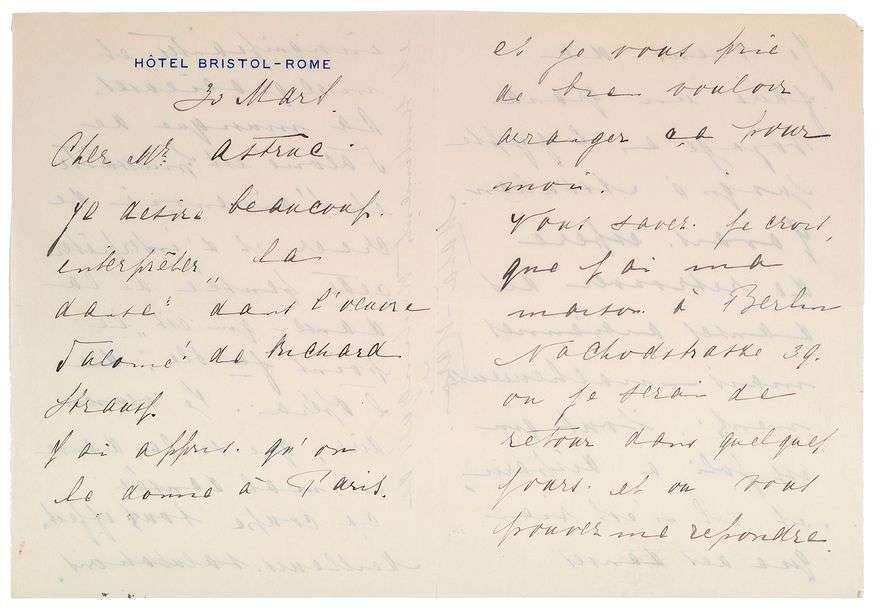 HÔTEL BRISTOL-ROME
30 Mars
Cher Mr. Astruc.
Je desire beaucoup.
interprèter "la
danse" dans l'oeuvre
Salomé de Richard
Strauss.
J'ai appris. qu'on
le donne à Paris.
et je vous prie
de bien vouloir
arranger ça pour
moi.
Vous savez. je crois,
que j'ai ma
maison à Berlin
Nachodstrasse 39.
ou je serai de
retour dans quelques
jours. et ou vous
pouvez me repondre.